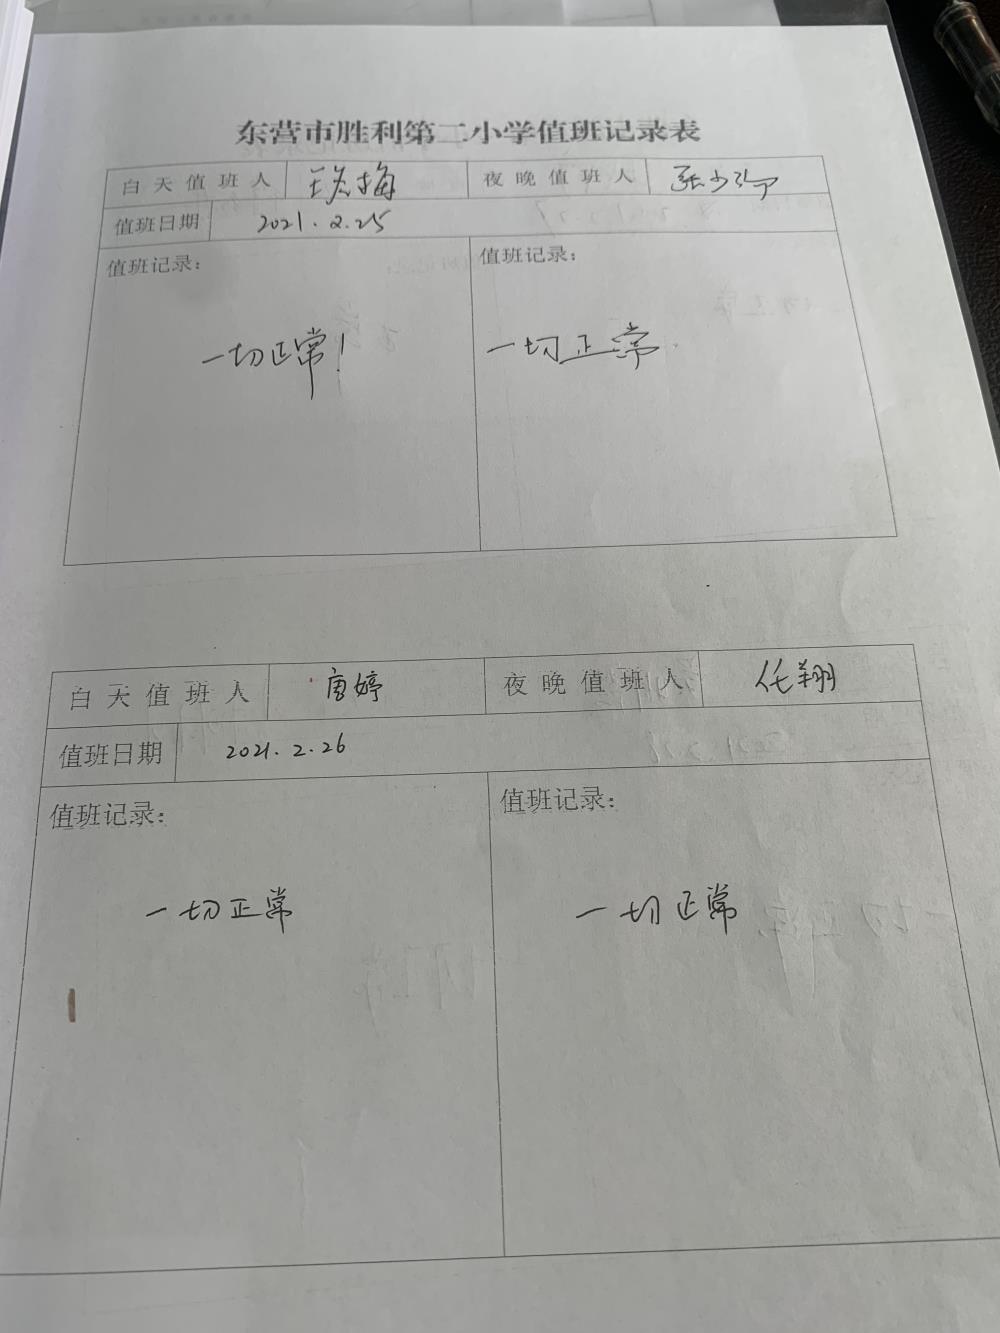 东营市胜利第二小学值班记录表
白天值班人 夜晚值班人
值班日期 2021.2.25
值班记录： 值班记录：
一切正常！ 一切正常.
白天值班人 唐婷 夜晚值班人 任翔
值班日期 2021.2.26
值班记录： 值班记录：
一切正常 一切正常